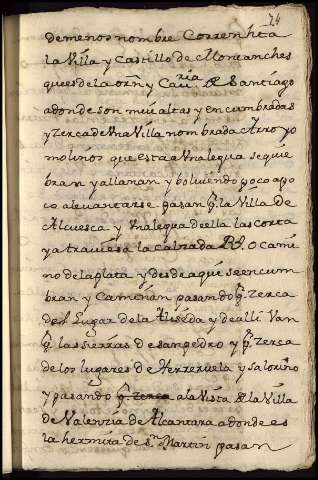 74
de menos nombre Corren hta
la Villa y Castillo de Montanches
que es de la orn y Cauria de Santiago
adonde son mui altas y encumbradas
y Zerca de Vna Villa nombrada Arroyo
molinos que esta a Vna legua se quie
bran y allanan y boluiendo poco apo
co a leuantarse pasan pr la Villa de
Alcuesca y Vna legua de ella las corta
y atrauiesa la calzada Rl. o cami
no de la plata y desde aqui se encum
bran y Caminan pasando pr zerca
del Lugar de la Aliseda y de alli Van
pr las sierras de san pedro y pr zerca
de los lugares de Herreruela y Salorino
y pasando pr zerca a la Vista de la Villa
de Valenzia de Alcantara adonde es
la hermita de Sn Martin pasan